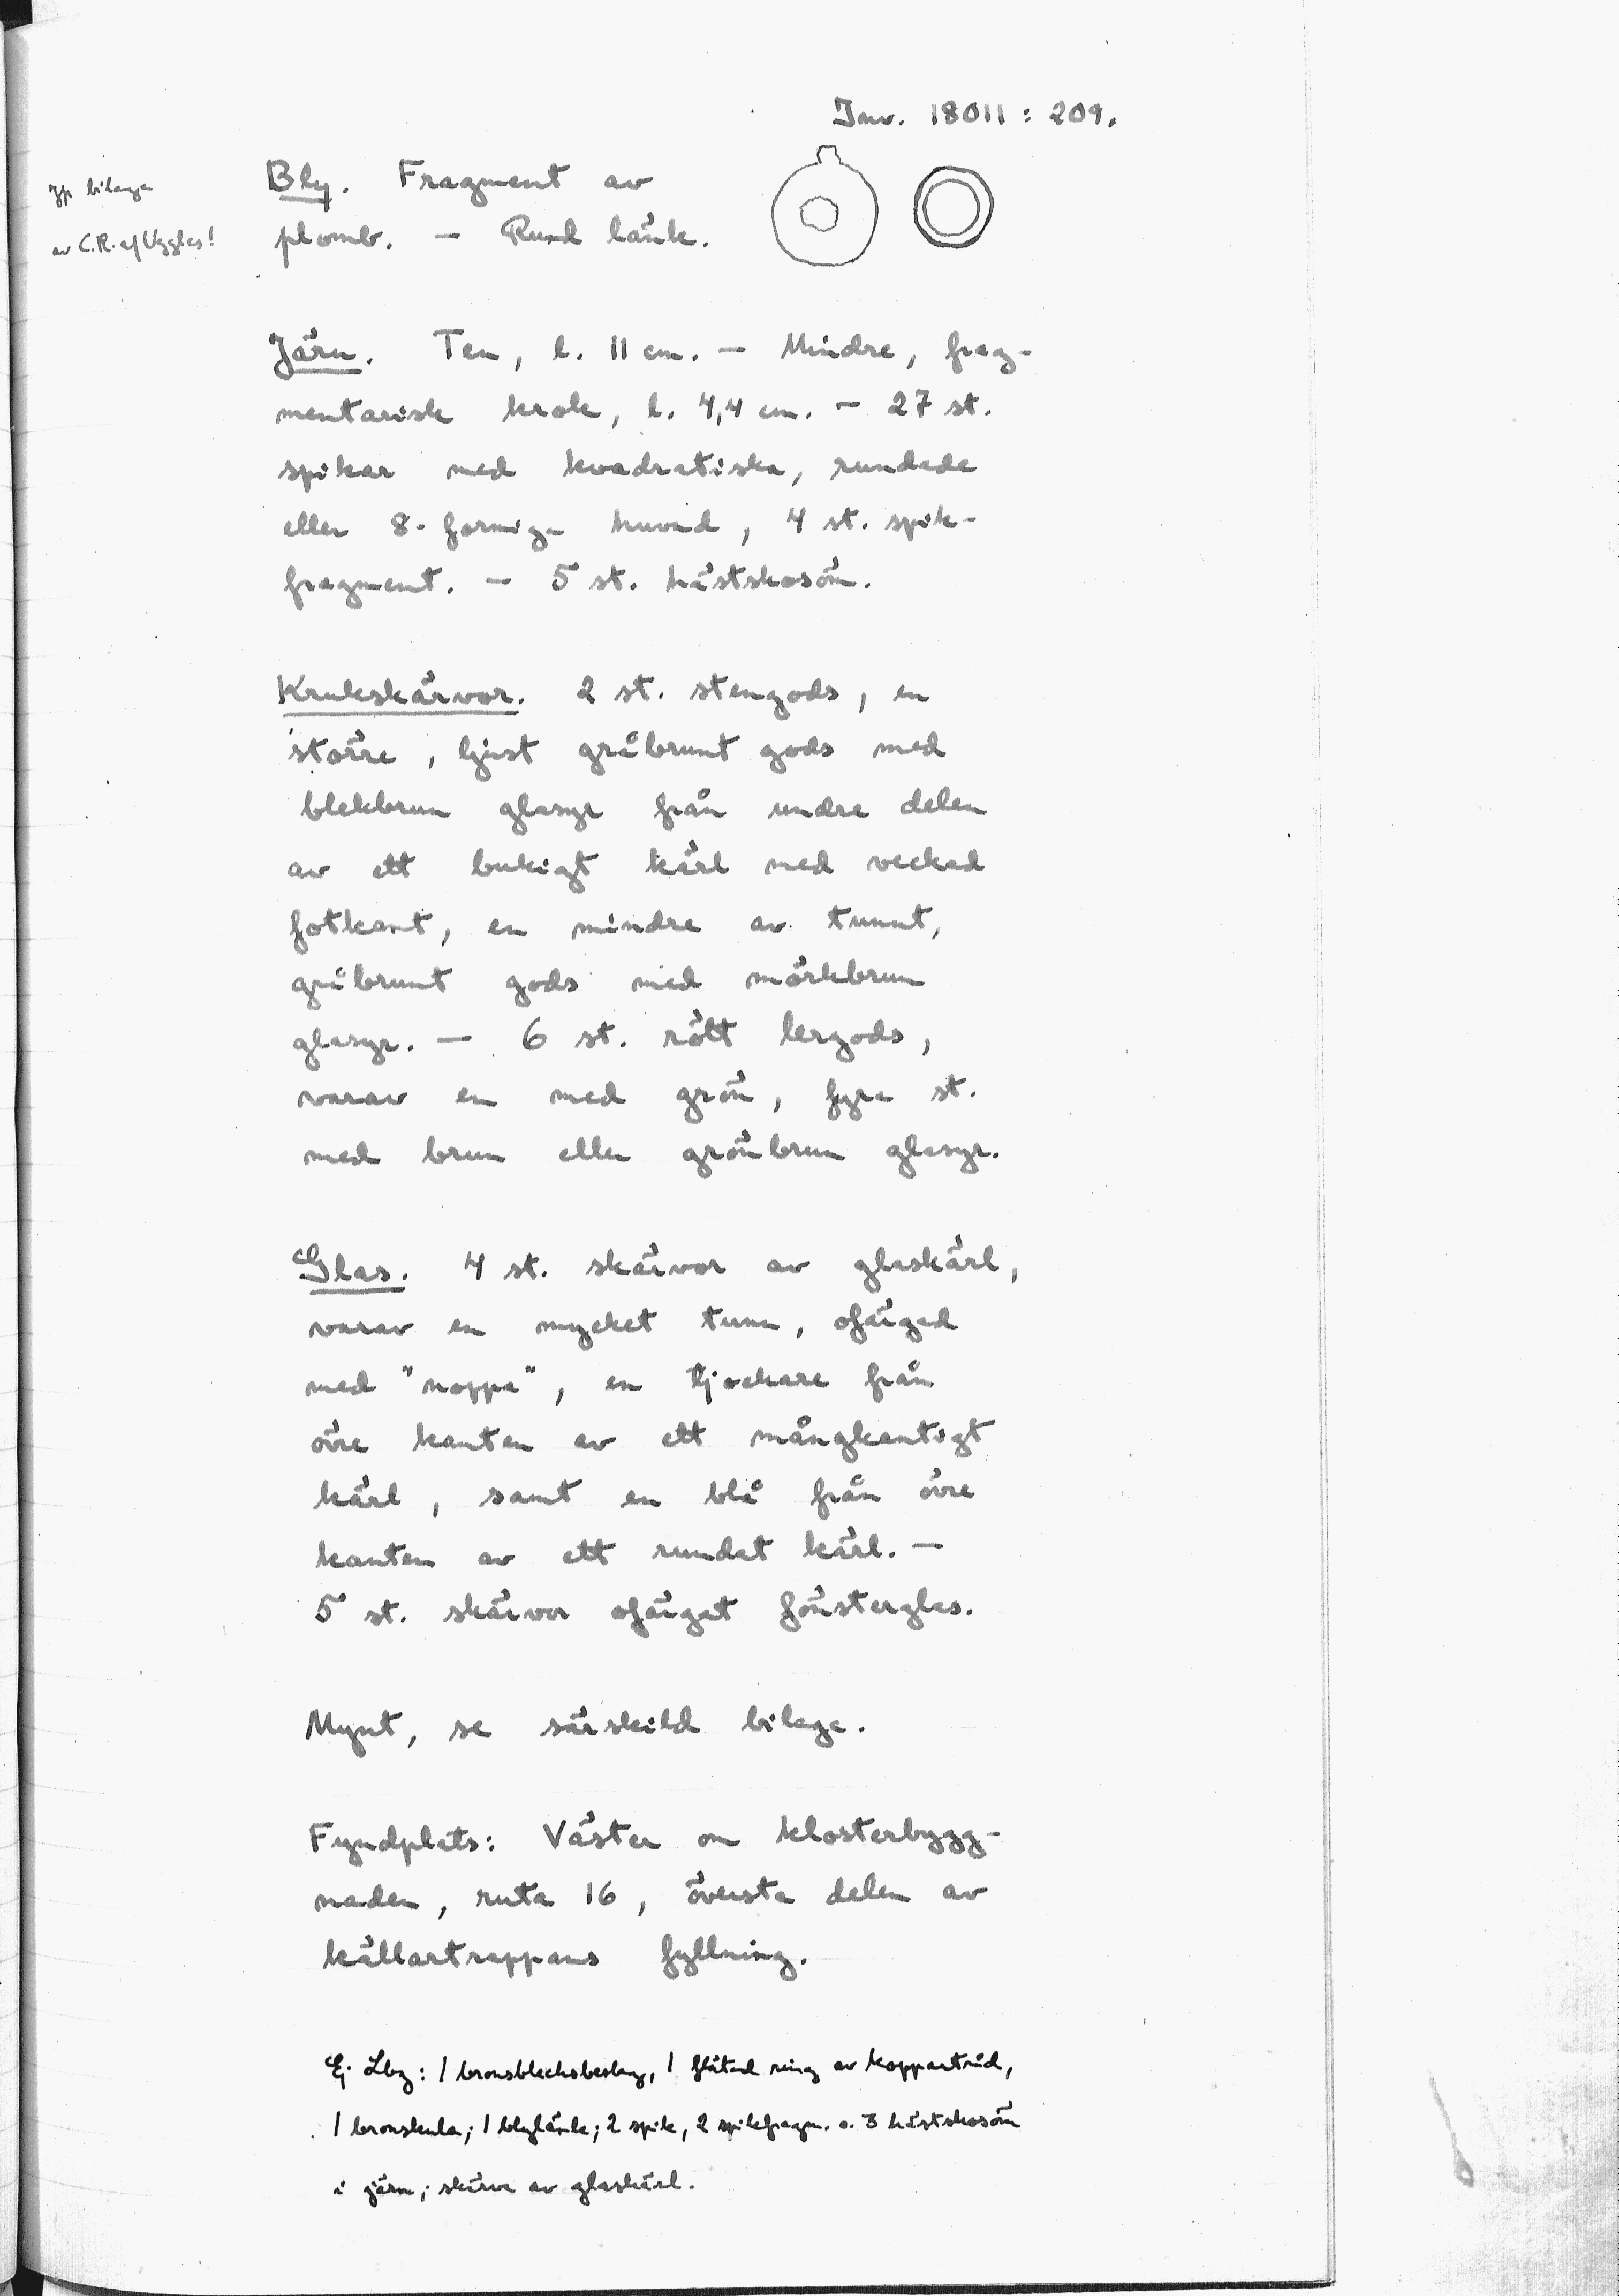 Inv. 18011 : 209.
Jfr bilaga
av C.R. af Ugglas!
Bly. Fragment av
plomb. — Rund länk.
Järn. Ten, l. 11 cm. — Mindre, frag-
mentarisk krok, l. 4,4 cm. — 27 st.
spikar med kvadratiska, rundade
eller 8-formiga huvud, 4 st. spik-
fragment. — 5 st. hästskosöm.
Krukskärvor. 2 st. stengods, en
större, ljust gråbrunt gods med
blekbrun glasyr från undre delen
av ett bukigt kärl med veckad
fotkant, en mindre av tunnt,
gråbrunt gods med mörkbrun
glasyr. — 6 st. rött lergods,
varav en med grön, fyra st.
med brun eller grönbrun glasyr.
Glas. 4 st. skärvor av glaskärl,
varav en mycket tunn, ofärgad
med "noppa", en tjockare från
övre kanten av ett mångkantigt
kärl, samt en blå från övre
kanten av ett rundat kärl. —
5 st. skärvor ofärgat fönsterglas.
Mynt, se särskild bilaga.
Fyndplats: Väster om klosterbygg-
naden, ruta 16, översta delen av
källartrappans fyllning.
Ej Lbg: 1 bronsblecksbeslag, 1 flätad ring av koppartråd,
1 bronskula; 1 blylänk; 2 spik, 2 spikfragm. o. 3 hästskosöm
i järn; skärva av glaskärl.